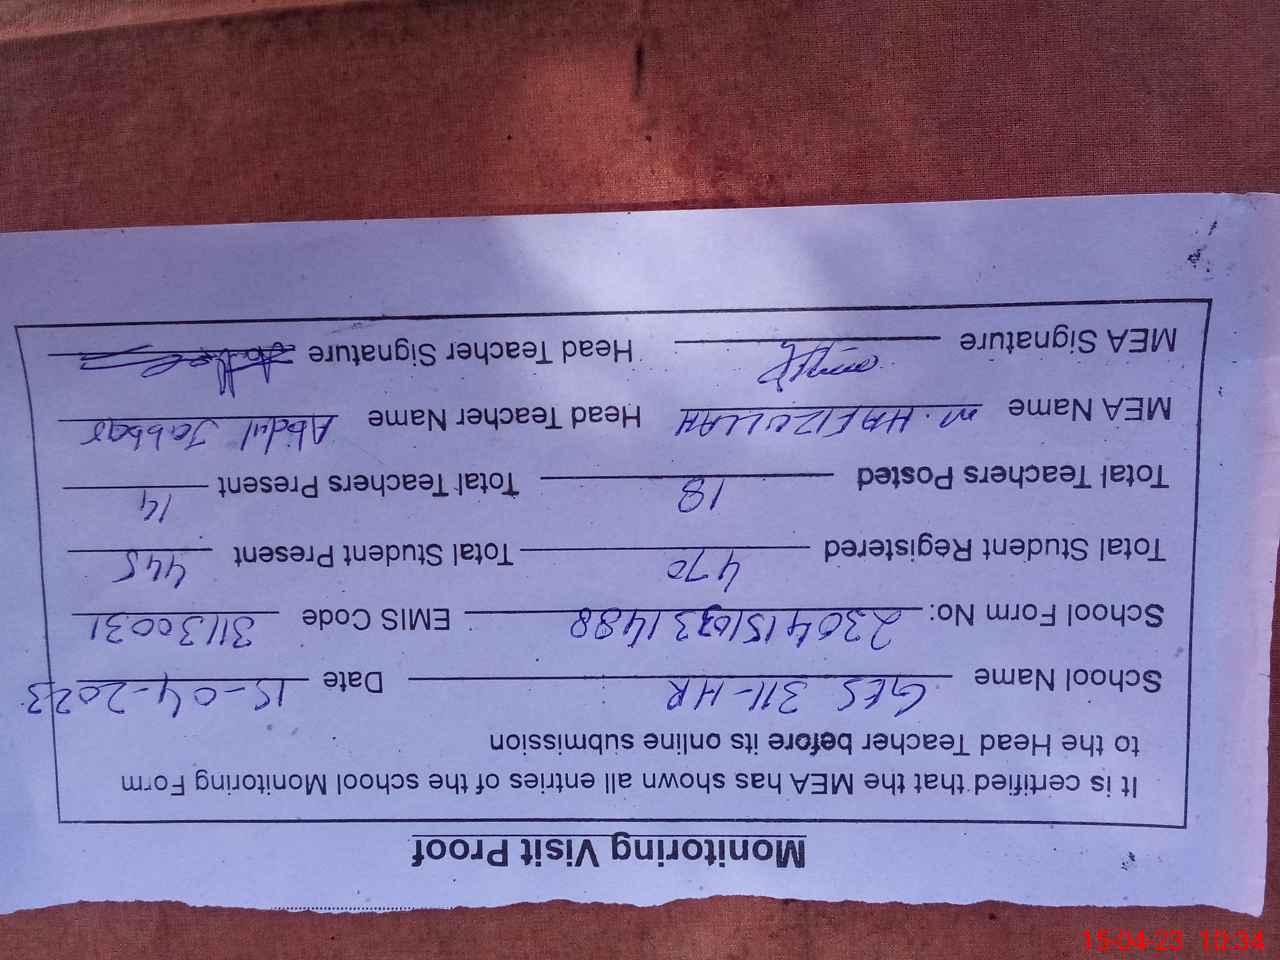 Monitoring Visit Proof
It is certified that the MEA has shown all entries of the school Monitoring Form
to the Head Teacher before its online submission
School Name GES 311-HR Date 15-04-2023
School Form No: EMIS Code 31130031
Total Student Registered 470 Total Student Present 445
Total Teachers Posted 18 Total Teachers Present 14
MEA Name M. HAFIZULLAH Head Teacher Name Abdul Jabbar
MEA Signature Head Teacher Signature
15-04-23 10:34